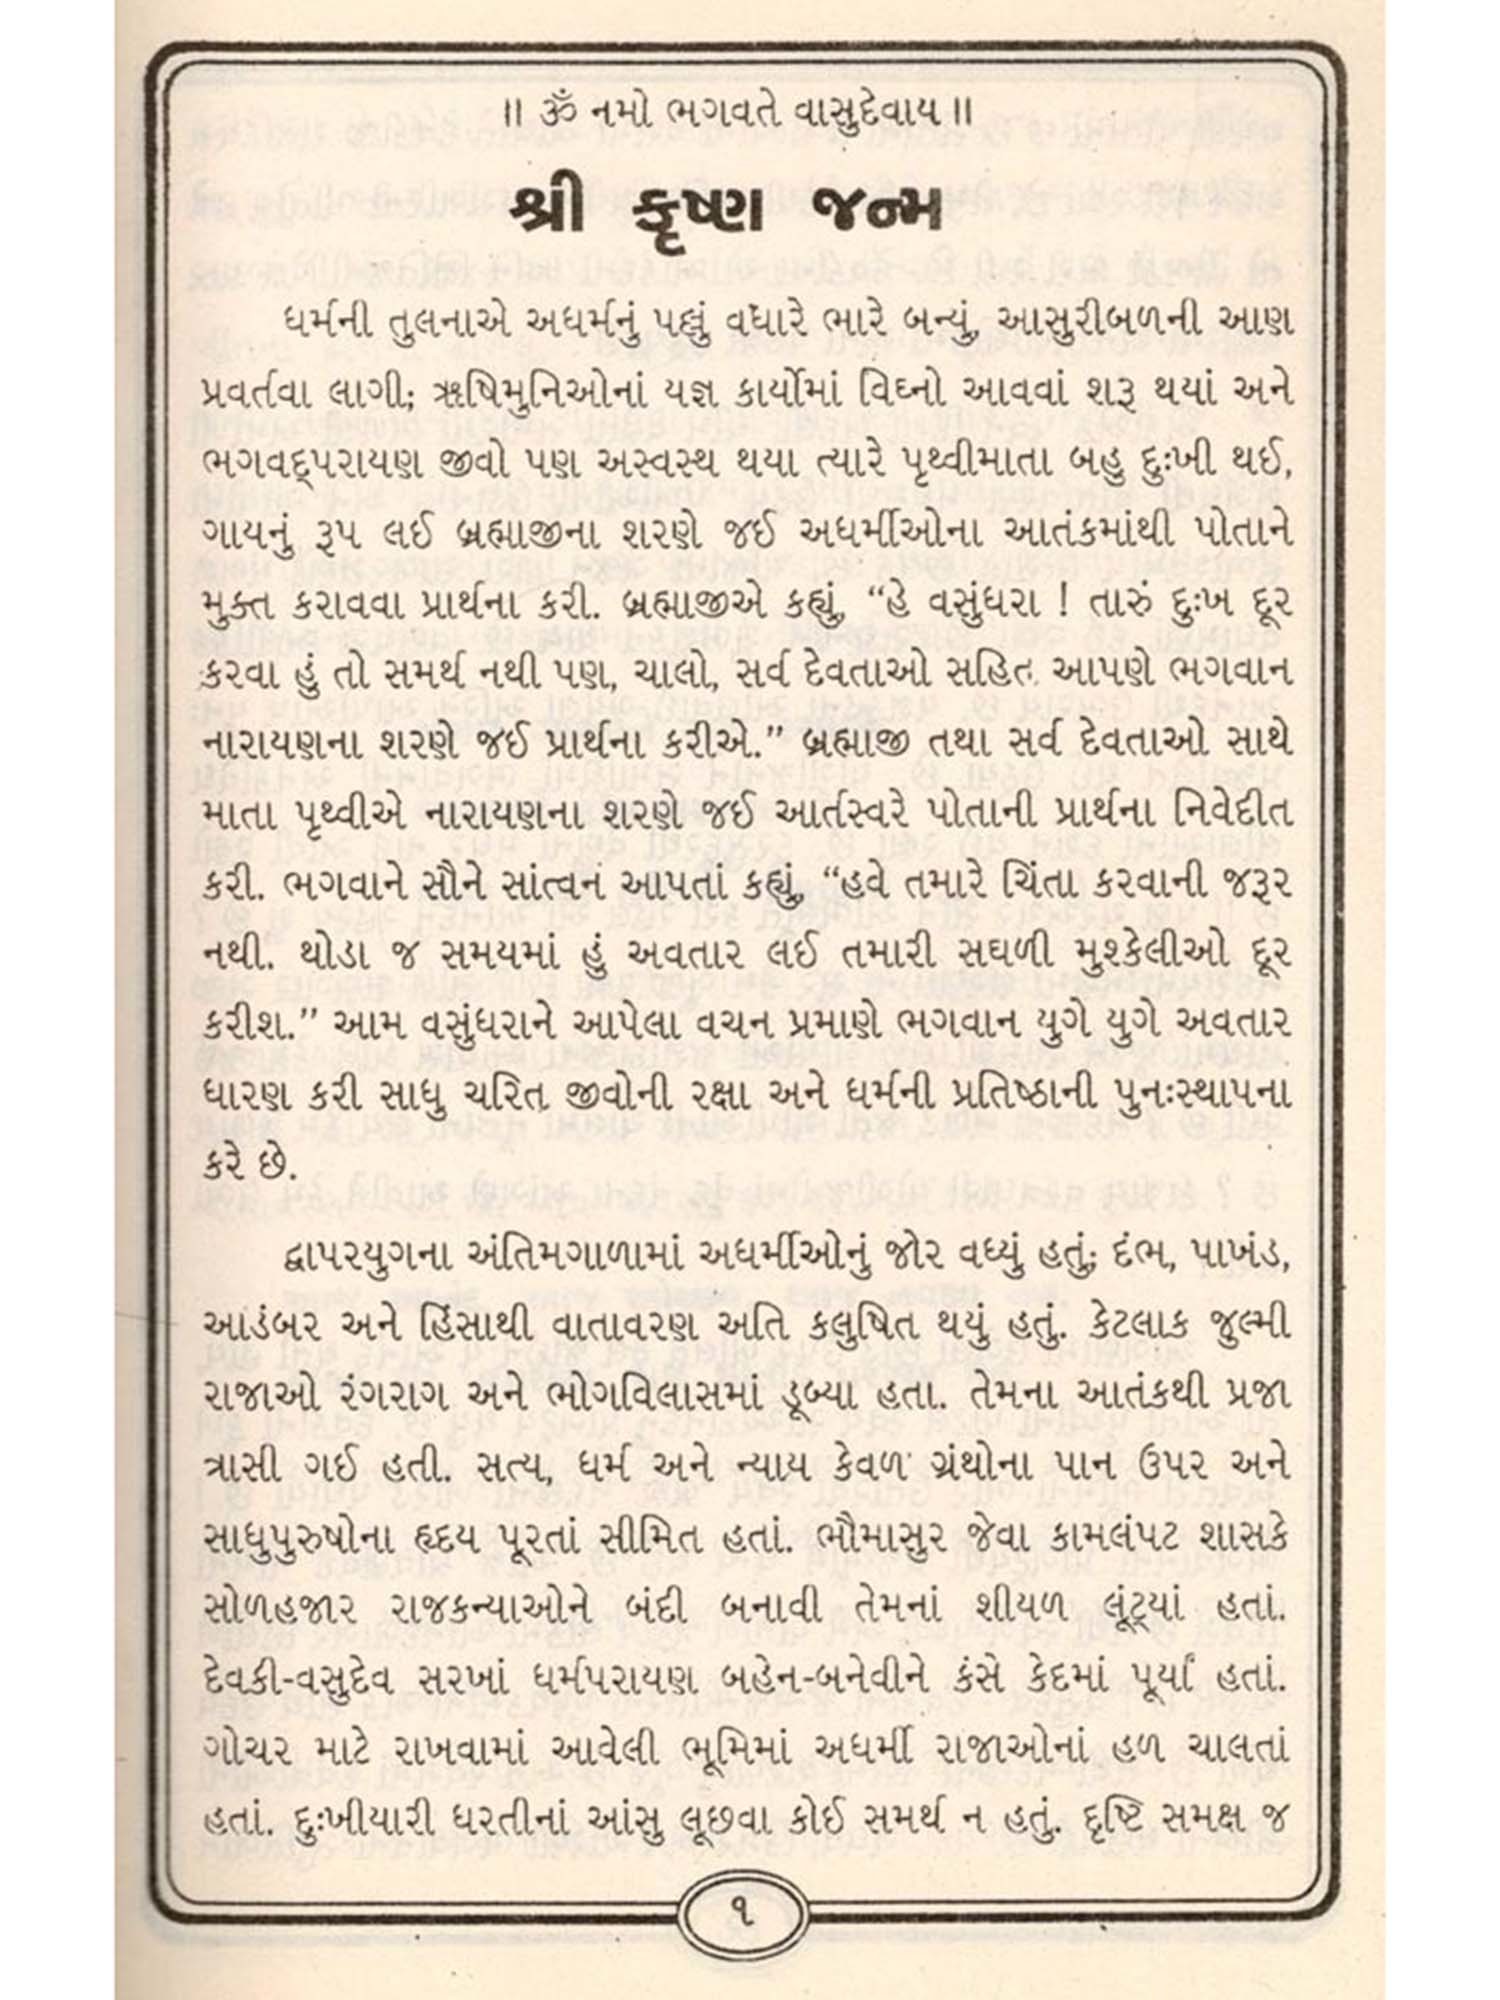 ॥ ૐ નમો ભગવતે વાસુદેવાય ॥
શ્રી કૃષ્ણ જન્મ
ધર્મની તુલનાએ અધર્મનું પલ્લું વધારે ભારે બન્યું, આસુરીબળની આણ
પ્રવર્તવા લાગી; ઋષિમુનિઓનાં યજ્ઞ કાર્યોમાં વિઘ્નો આવવાં શરૂ થયાં અને
ભગવદ્પરાયણ જીવો પણ અસ્વસ્થ થયા ત્યારે પૃથ્વીમાતા બહુ દુઃખી થઈ,
ગાયનું રૂપ લઈ બ્રહ્માજીના શરણે જઈ અધર્મીઓના આતંકમાંથી પોતાને
મુક્ત કરાવવા પ્રાર્થના કરી. બ્રહ્માજીએ કહ્યું, “હે વસુંધરા ! તારું દુઃખ દૂર
કરવા હું તો સમર્થ નથી પણ, ચાલો, સર્વ દેવતાઓ સહિત આપણે ભગવાન
નારાયણના શરણે જઈ પ્રાર્થના કરીએ.” બ્રહ્માજી તથા સર્વ દેવતાઓ સાથે
માતા પૃથ્વીએ નારાયણના શરણે જઈ આર્તસ્વરે પોતાની પ્રાર્થના નિવેદીત
કરી. ભગવાને સૌને સાંત્વન આપતાં કહ્યું, “હવે તમારે ચિંતા કરવાની જરૂર
નથી. થોડા જ સમયમાં હું અવતાર લઈ તમારી સઘળી મુશ્કેલીઓ દૂર
કરીશ.” આમ વસુંધરાને આપેલા વચન પ્રમાણે ભગવાન યુગે યુગે અવતાર
ધારણ કરી સાધુ ચરિત જીવોની રક્ષા અને ધર્મની પ્રતિષ્ઠાની પુનઃસ્થાપના
કરે છે.
દ્વાપરયુગના અંતિમગાળામાં અધર્મીઓનું જોર વધ્યું હતું; દંભ, પાખંડ,
આડંબર અને હિંસાથી વાતાવરણ અતિ કલુષિત થયું હતું. કેટલાક જુલ્મી
રાજાઓ રંગરાગ અને ભોગવિલાસમાં ડૂબ્યા હતા. તેમના આતંકથી પ્રજા
ત્રાસી ગઈ હતી. સત્ય, ધર્મ અને ન્યાય કેવળ ગ્રંથોના પાન ઉપર અને
સાધુપુરુષોના હૃદય પૂરતાં સીમિત હતાં. ભૌમાસુર જેવા કામલંપટ શાસકે
સોળહજાર રાજકન્યાઓને બંદી બનાવી તેમનાં શીયળ લૂંટ્યાં હતાં.
દેવકી-વસુદેવ સરખાં ધર્મપરાયણ બહેન-બનેવીને કંસે કેદમાં પૂર્યાં હતાં.
ગોચર માટે રાખવામાં આવેલી ભૂમિમાં અધર્મી રાજાઓનાં હળ ચાલતાં
હતાં. દુઃખીયારી ધરતીનાં આંસુ લૂછવા કોઈ સમર્થ ન હતું. દૃષ્ટિ સમક્ષ જ
૧